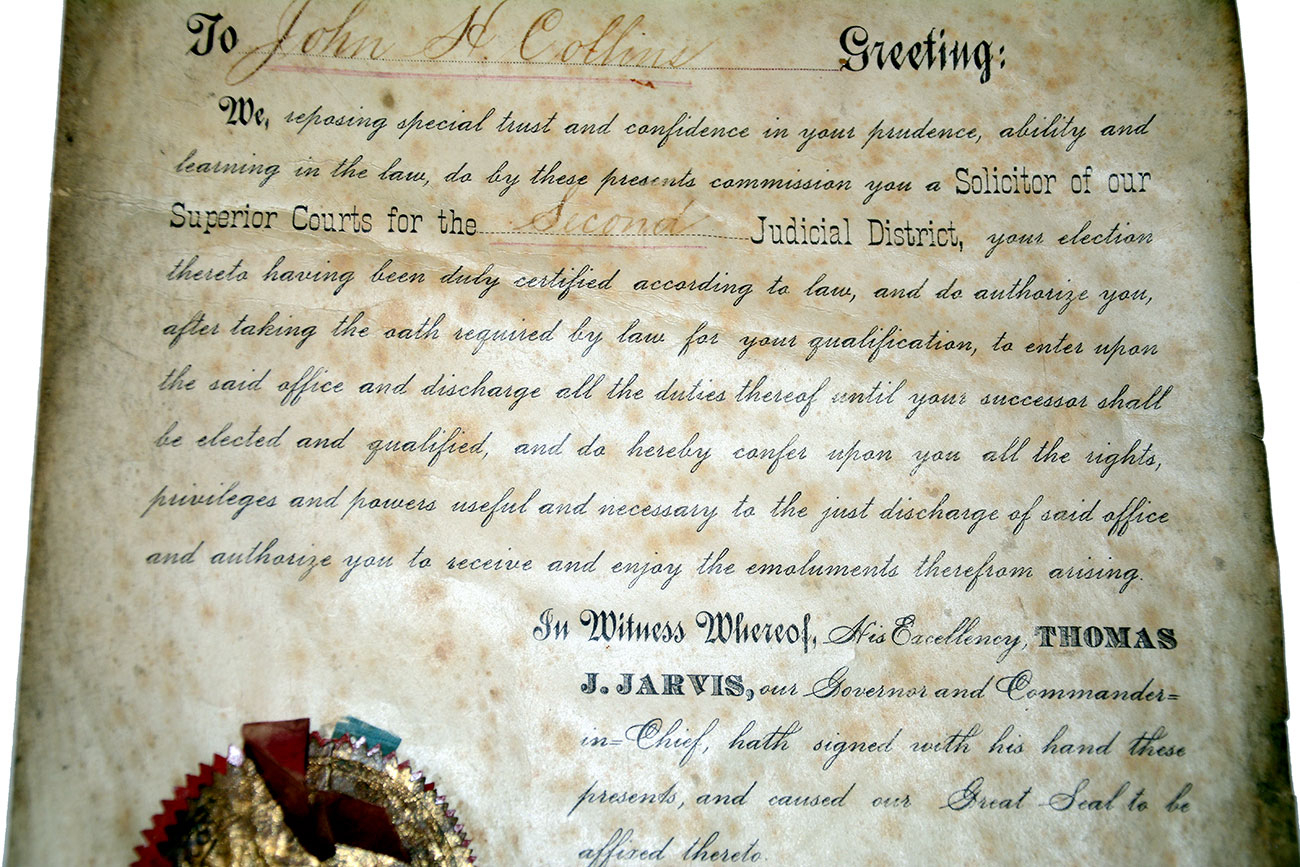 To John H. Collins Greeting:
We, reposing special trust and confidence in your prudence, ability and
learning in the law, do by these presents commission you a Solicitor of our
Superior Courts for the Second Judicial District, your election
thereto having been duly certified according to law, and do authorize you,
after taking the oath required by law for your qualification, to enter upon
the said office and discharge all the duties thereof until your successor shall
be elected and qualified, and do hereby confer upon you all the rights,
privileges and powers useful and necessary to the just discharge of said office
and authorize you to receive and enjoy the emoluments therefrom arising.
In Witness Whereof, His Excellency, THOMAS
J. JARVIS, our Governor and Commander=
in=Chief, hath signed with his hand these
presents, and caused our Great Seal to be
affixed thereto.